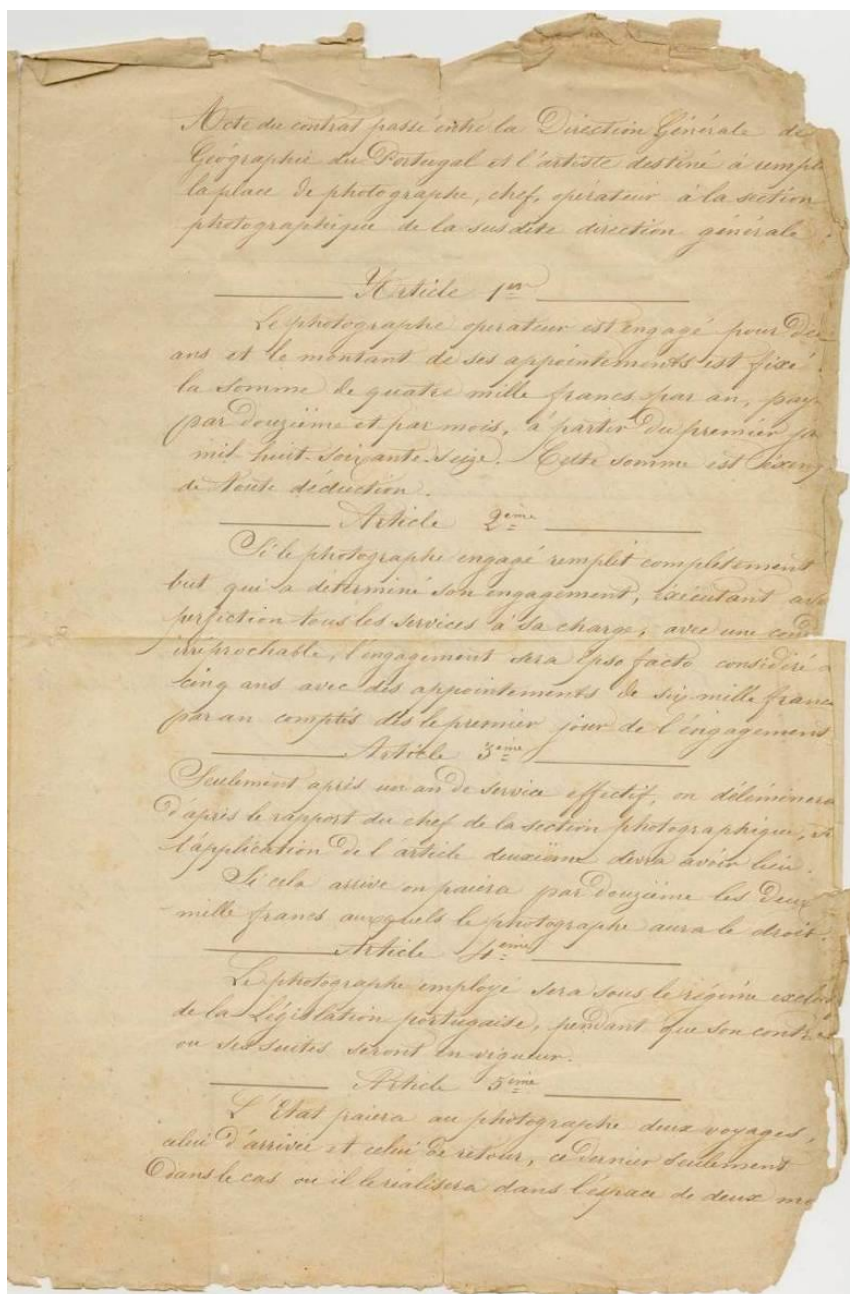 Acte du contrat passé entre la Direction Générale de
Géographie du Portugal et l'artiste destiné à rempl
la place de photographe, chef, opérateur à la section
photographique de la susdite direction générale
Article 1er
Le photographe operateur est engagé pour
ans et le montant de ses appointements est fixé
la somme de quatre mille francs par an, pay
par douzième et par mois, à partir du premier ja
mil huit-soixante-seize. Cette somme est
de toute déduction.
Article 2eme
Si le photographe engagé remplit complètement
but qui a determiné son engagement, éxécutant ave
perfection tous les services à sa charge, avec une cond
irréprochable, l'engagement sera ipso facto considéré
cinq ans avec des appointements de six mille francs
par an comptés dès le premier jour de l'engagement
Article 3eme
Seulement après un an de service effectif, on
d'après le rapport du chef de la section photographique, si
l'application de l'article deuxième devra avoir lieu.
Si cela arrive on paiera par douzième les deux
mille francs auxquels le photographe aura le droit.
Article 4eme
Le photographe employé sera sous le régime exclus
de la Législation portugaise, pendant que son contr
ou ses suites seront en vigueur.
Article 5eme
L'Etat paiera au photographe deux voyages,
celui d'arrivée et celui de retour, ce dernier seulement
dans le cas ou il le réalisera dans l'espace de deux mo